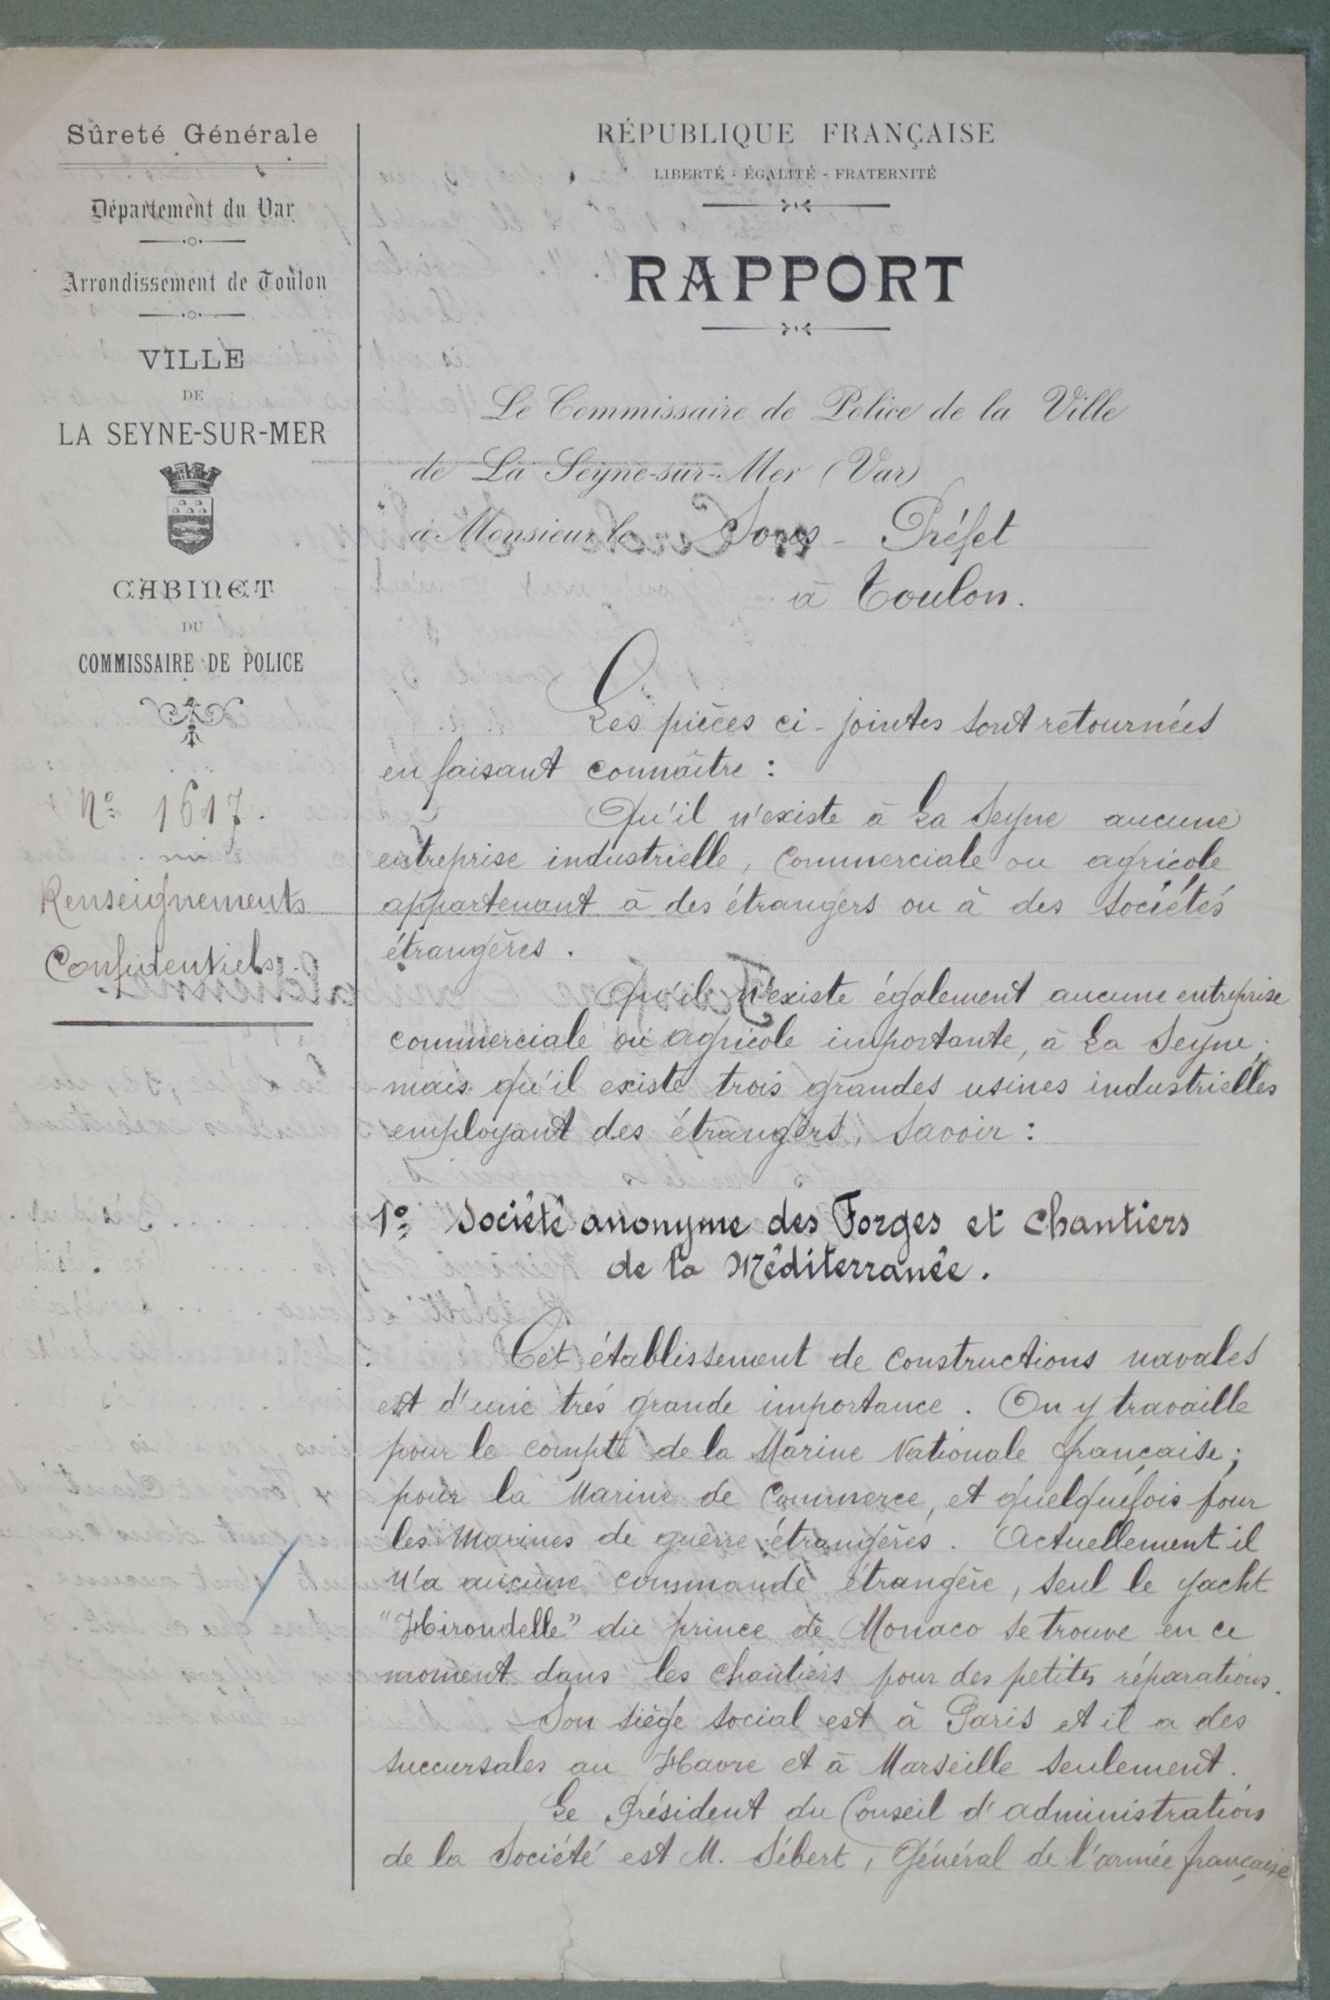 Sûreté Générale
Département du Var
Arrondissement de Toulon
VILLE
DE
LA SEYNE-SUR-MER
CABINET
DU
COMMISSAIRE DE POLICE
No 1617.
Renseignements
Confidentiels.
RÉPUBLIQUE FRANÇAISE
LIBERTÉ - ÉGALITÉ - FRATERNITÉ
RAPPORT
Le Commissaire de Police de la Ville
de La Seyne-sur-Mer (Var)
à Monsieur le Sous-Préfet
à Toulon.
Les pièces ci-jointes sont retournées
en faisant connaître :
Qu'il n'existe à La Seyne aucune
entreprise industrielle, commerciale ou agricole
appartenant à des étrangers ou à des sociétés
étrangères.
Qu'il n'existe également aucune entreprise
commerciale ou agricole importante, à La Seyne,
mais qu'il existe trois grandes usines industrielles
employant des étrangers, savoir :
1o Société anonyme des Forges et chantiers
de la Méditerranée.
Cet établissement de constructions navales
est d'une très grande importance. On y travaille
pour le compte de la Marine Nationale française ;
pour la Marine de Commerce, et quelquefois pour
les Marines de guerre étrangères. Actuellement il
n'a aucune commande étrangère, seul le yacht
"Hirondelle" du prince de Monaco se trouve en ce
moment dans les chantiers pour des petites réparations.
Son siège social est à Paris et il a des
succursales au Havre et à Marseille seulement.
Le Président du Conseil d'administration
de la Société est M. Sébert, Général de l'armée française